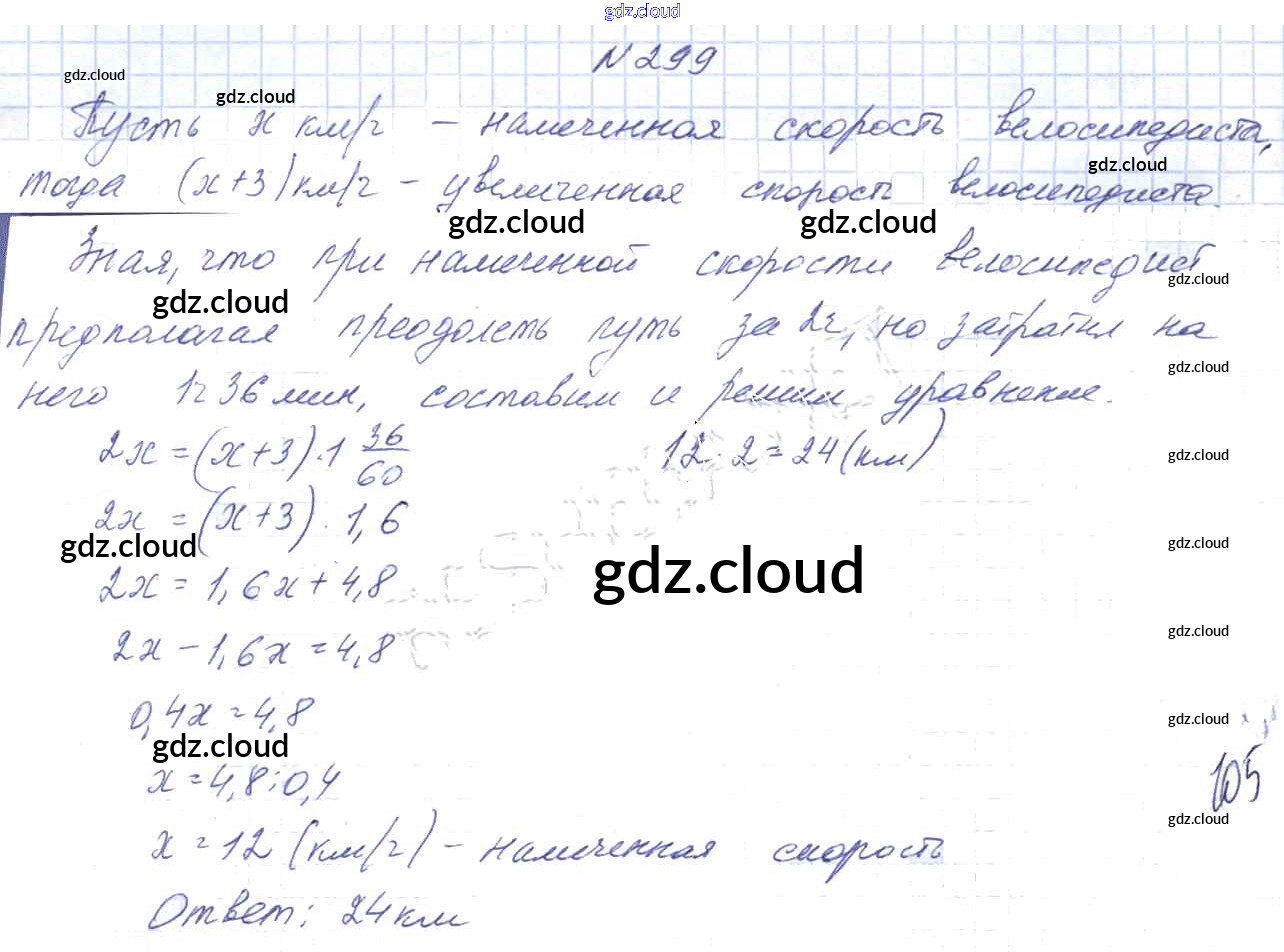 gdz.cloud
N 299
gdz.cloud
gdz.cloud
Пусть х км/ч – намеченная скорость велосипедиста,
gdz.cloud
тогда (х+3) км/ч – увеличенная скорость велосипедиста.
gdz.cloud gdz.cloud
Зная, что при намеченной скорости велосипедист
gdz.cloud
gdz.cloud
предполагал преодолеть путь за 2ч, но затратил на
gdz.cloud
него 1ч 36 мин, составим и решим уравнение.
2х = (х+3)·1 36/60 12·2=24(км)
gdz.cloud
2х = (х+3)·1,6
gdz.cloud gdz.cloud
gdz.cloud
2х = 1,6х + 4,8
2х – 1,6х = 4,8
gdz.cloud
0,4х = 4,8
gdz.cloud
gdz.cloud
х = 4,8:0,4
105
gdz.cloud
х = 12 (км/ч) – намеченная скорость
Ответ: 24 км